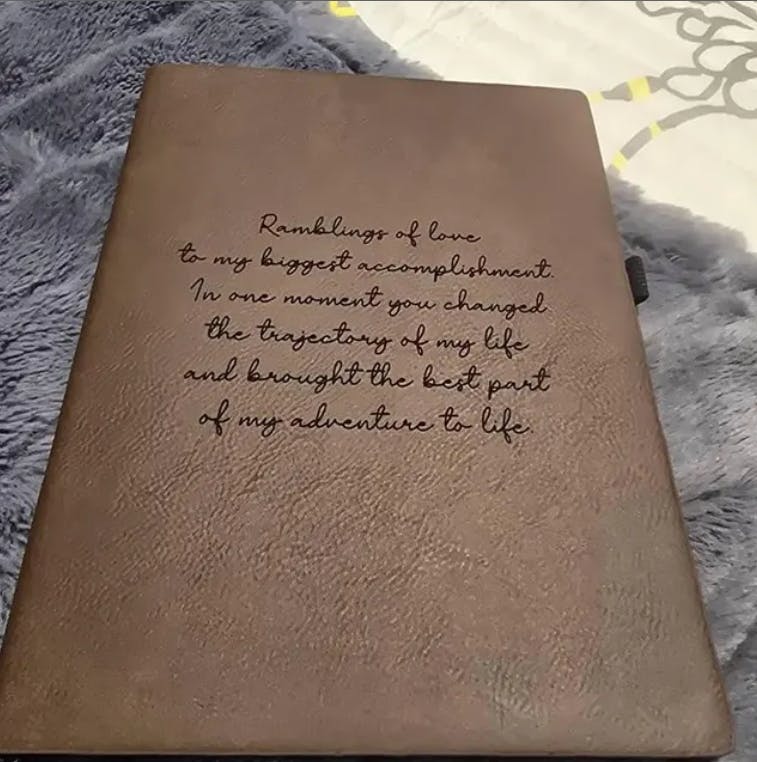 Ramblings of love
to my biggest accomplishment.
In one moment you changed
the trajectory of my life
and brought the best part
of my adventure to life.